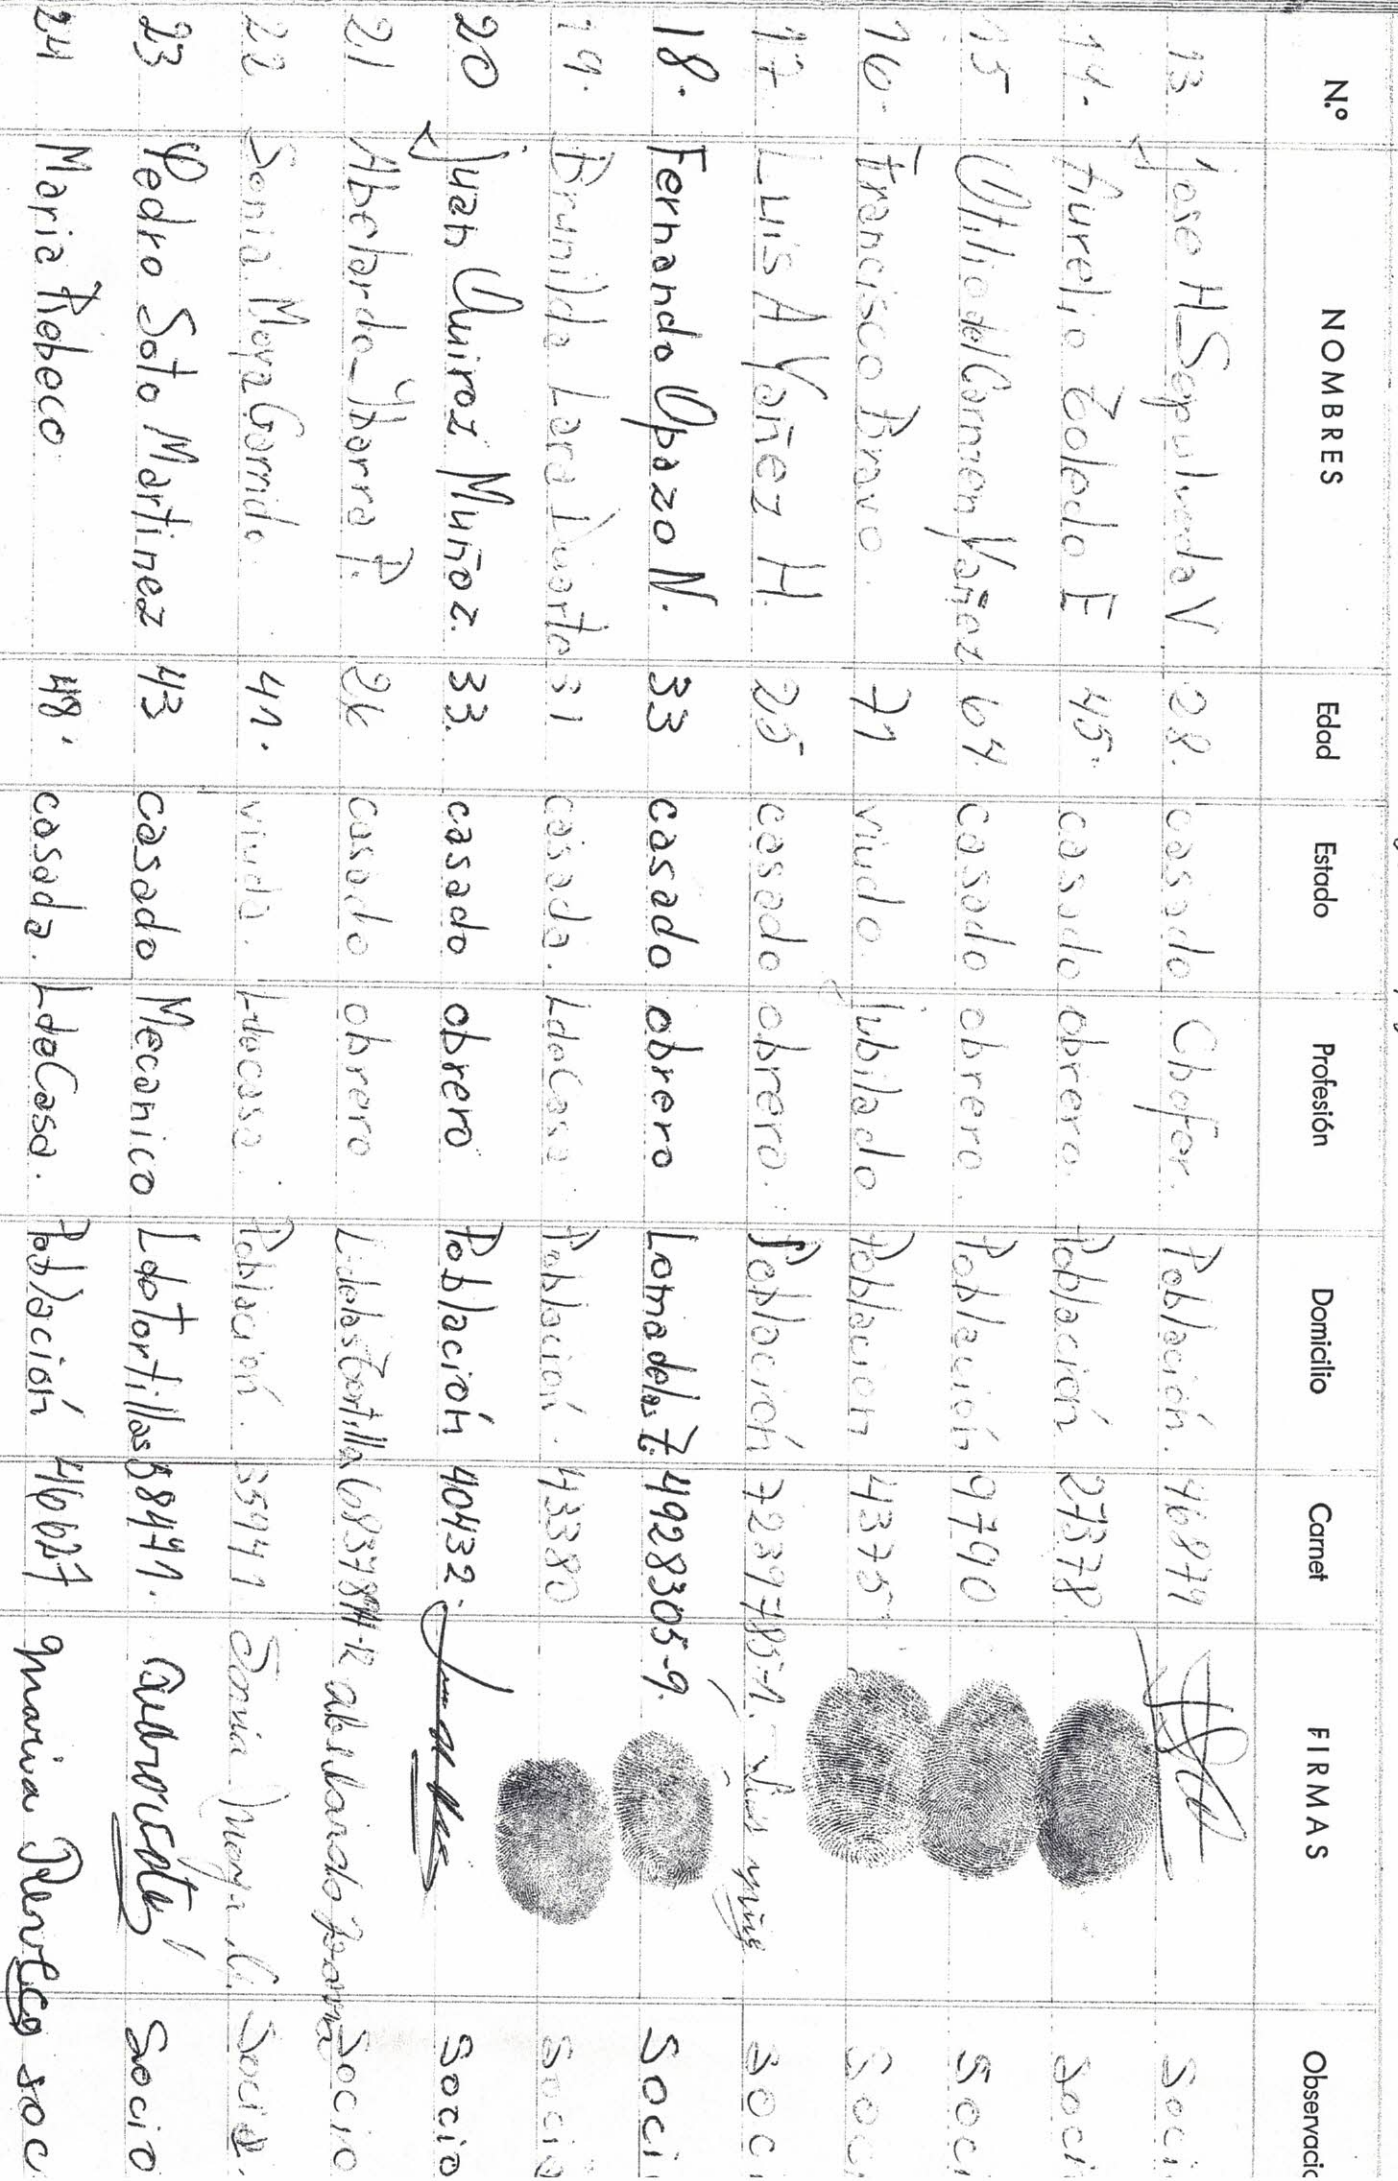 N.º NOMBRES Edad Estado Profesión Domicilio Carnet FIRMAS Observacio
13 Jose H Sepulveda V. 28. casado Chofer. Población. 46874 Soci
14. Aurelio Toledo E 45. casado obrero. Población 27378. Soci
15 Utilio del Carmen Yañez 64 casado obrero. Población 9790. Soci
16. Francisco Bravo. 71 viudo. Jubilado. Población 4375 Soci
17 Luis A Yañez H. 25 casado obrero. Población 7239785-1.- Luis Soc
18. Fernando Opazo N. 33 casado. obrero Loma de las T. 4928305-9. Soci
19. Brunilda Lara Duarte 31 casada. L de Casa. Población. 43380 Socia
20 Juan Quiroz Muñoz. 33. casado obrero Población 40432. Socio
21 Abelardo Ybarra P. 26 casado obrero. L de las Tortilla Socio
22 Sonia Moya Garrido. 41. viuda. L de casa. Población. 35941 Sonia Moya G. Socia.
23 Pedro Soto Martinez 43 casado Mecanico L de Tortillas 58471. Socio
24 Maria Rebeco. 48. casada. L de Casa. Población 46627 Maria Rebeco soc